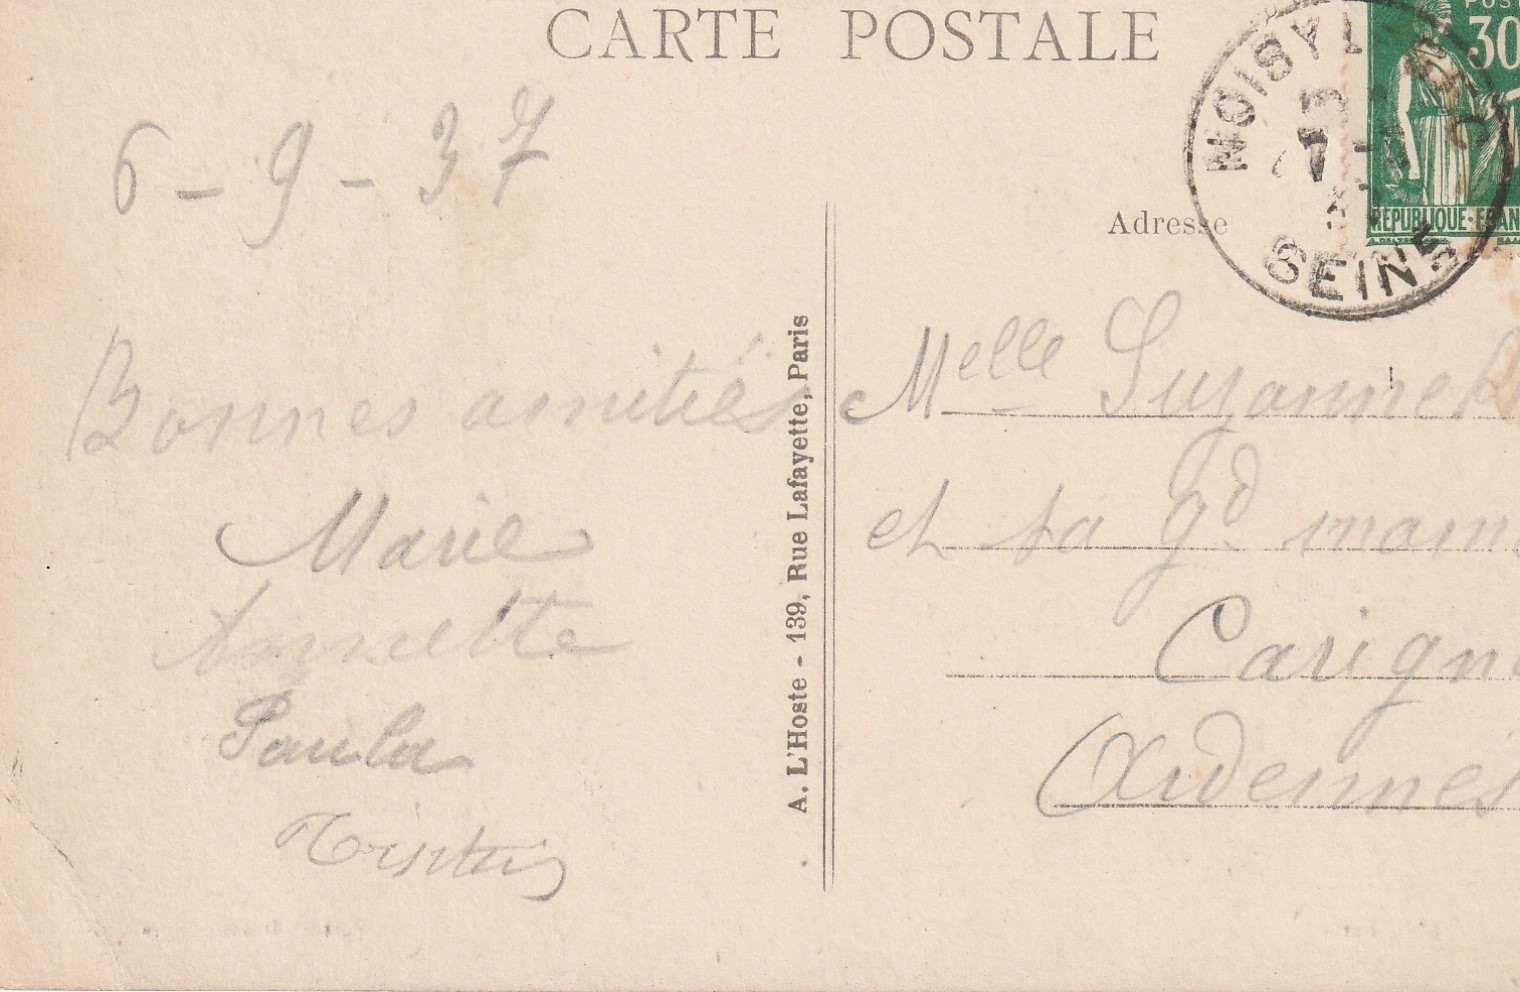 CARTE POSTALE
6 - 9 - 37
Bonnes amitiés
Marie
Annette
Paula
A. L'Hoste - 139, Rue Lafayette, Paris
NOISY L
SEINE
POS
30
REPUBLIQUE - FRAN
Adresse
Melle Suzanne
et sa gd mam
Carign
Ardennes